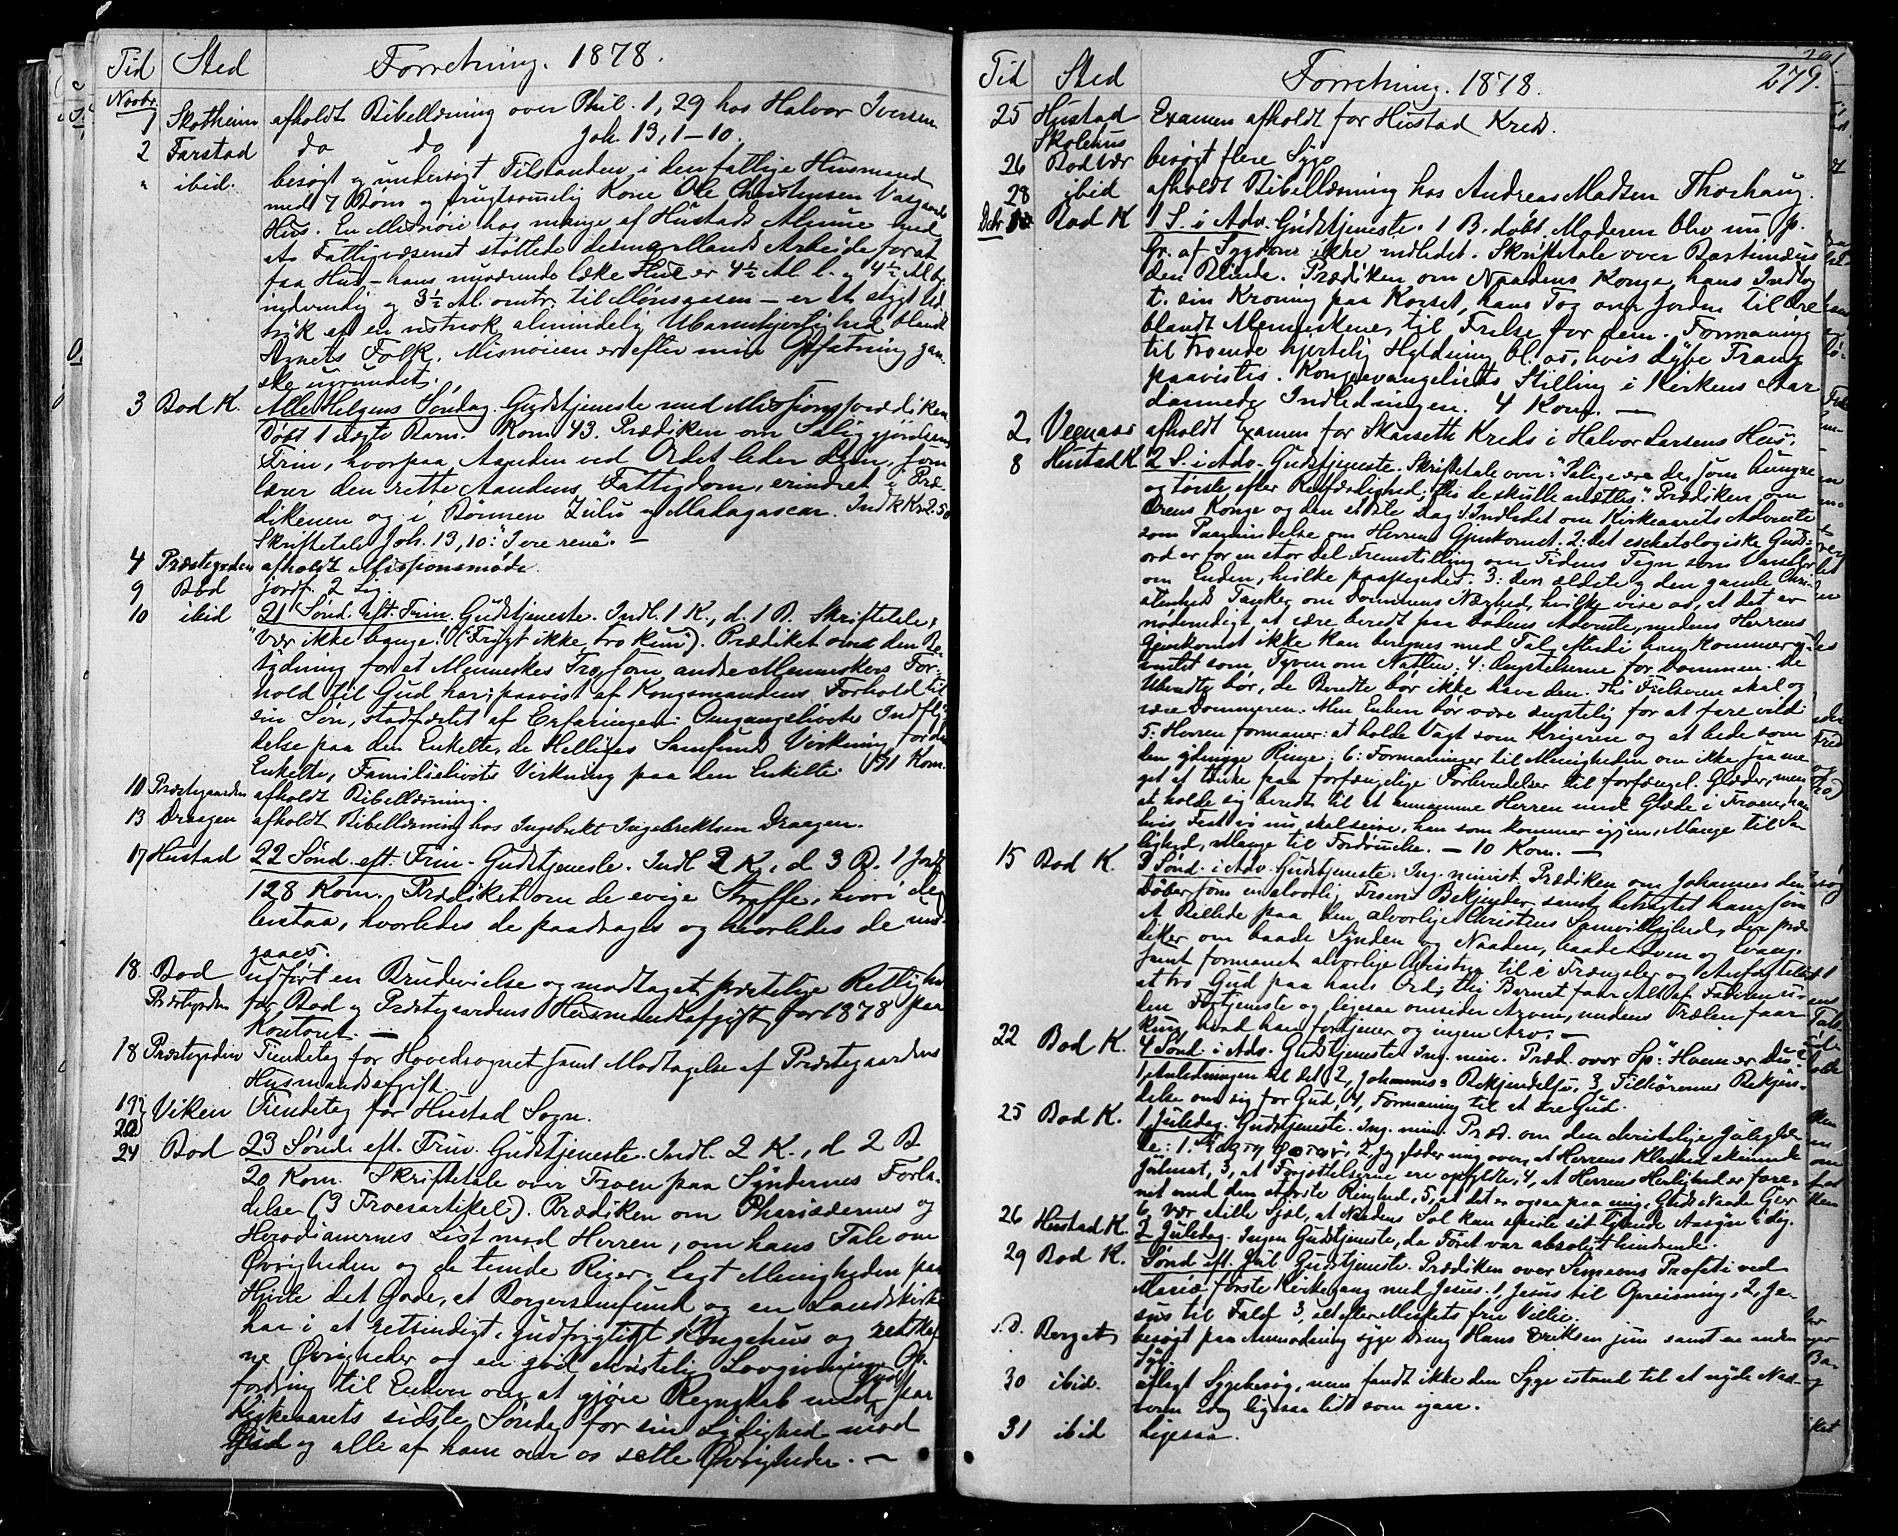 Tid Sted Forretning. 1878.
Novbr.
1 Skotheim afholdt Bibellæsning over Phil. 1, 29 hos Halvor Iversen
2 Farstad do do Joh. 13, 1-10.
" ibid. besøgt og undersøgt Tilstanden i den fattige Husmand
med 7 Børn og frugtsommelig Kone Ole Christensen
Hus. En Misnøie hos mange af Hustads Almue med
at Fattigvæsenet støttede Arbeide for at
faa Hus - hans nuværende læke Hus er 4½ Al. l. og 4½ Al. b.
indvendig og 3½ Al. omtr. til Mønsaasen - er et stygt Ud-
tryk af en nok almindelig Ubarmhjertighed blandt
Folk. Misnøien er efter min Opfatning gan-
ske ugrundet.
3 Bod K. Alle Helgens Søndag. Gudstjeneste med Missionsprædiken
Døbt 1 uægte Barn. Kom. 43. Prædiken om Saliggjørelsens
Trin, hvorpaa Aanden ved Ordet leder dem, som
lærer den rette Aandens Fattigdom, erindret i Præ-
dikenen og i Bønnen Zulu og Madagascar. Indk. Kr. 2.50
Skriftetale Joh. 13, 10: "I ere rene". -
4 Præstegaarden afholdt Missionsmøde.
9 Bod jordf. 2 Lig.
10 ibid 21 Sønd. eft. Trin. Gudstjeneste. Indl. 1 K., d. 1 B. Skriftetale:
"Vær ikke bange" (Frygt ikke, tro kun). Prædiket om den Be-
tydning for et Menneskes Tro, som andre Menneskers For-
hold til Gud har; paavist af Kongsmandens Forhold til
sin Søn, stadfæstet af Erfaringen: Omgangslivets Indfly-
delse paa den Enkelte, de Helliges Samfunds Virkning for den
Enkelte, Familielivets Virkning paa den Enkelte. 51 Kom.
10 Præstegaarden afholdt Bibellæsning.
13 Draagen afholdt Bibellæsning hos Ingebrikt Ingebriktsen Draagen.
17 Hustad 22 Sønd. eft. Trin. Gudstjeneste. Indl 2 K., d 3 B. 1 Jordf.
128 Kom. Prædiket om de evige Straffe, hvori de
bestaa, hvorledes de paadrages og hvorledes de und-
gaaes.
18 Bod udført en Brudevielse og modtaget præstelige Rettigh.
Præstegaarden for Bod og Præstegaardens Husmandsafgift for 1878 paa
Kontoret. -
18 Præstegaarden Tiendetag for Hovedsognet samt Modtagelse af Præstegaardens
Husmandsafgift.
19
20 Viken Tiendetag for Hustad Sogn.
24 Bod 23 Sønd. eft. Trin. Gudstjeneste. Indl. 2 K., d 2 B
20 Kom. Skriftetale over Troen paa Syndernes Forla-
delse (3 Troesartikel). Prædiken om Pharisæernes og
Herodianernes List mod Herren, om hans Tale om
Øvrigheden og de tvende Riger. Lagt Menigheden paa
Hjerte det Gode, et Borgersamfund og en Landskirke
har i et retsindigt, gudfrygtigt Kongehus og
Øvrigheder og en god christelig Lovgivning. Op-
fordring til Enhver om at gjøre Regnskab med Gud paa
Kirkeaarets sidste Søndag for sin Lydighed mod
Gud og alle af ham over os satte Øvrigheder. -
279.
Tid Sted Forretning. 1878.
25 Hustad Skolehus Examen afholdt for Hustad Kreds.
26 Bodvær besøgt flere Syge
28 ibid afholdt Bibellæsning hos Andreas Madsen Thorhaug.
Debr. Bod K 1 S. i Adv. Gudstjeneste. 1 B. døbt. Moderen blev nu p.
Gr. af Sygdom ikke indledet. Skriftetale over Bartimæus
den Blinde. Prædiken om Naadens Konge, hans Indtog
t. sin Kroning paa Korset, hans Tog over Jorden til Ære
blandt Menneskene, til Frelse for dem. Formaning
til troende hjertelig Hyldning bl. os, hvis dybe Trang
paavistes. Kongeevangeliets Stilling i Kirkens Aar
dannede Indledningen. 4 Kom. -
2 Veenaas afholdt Examen for Skarseth Kreds i Halvor Larsens Hus.
8 Hustad K 2 S. i Adv. Gudstjeneste. Skriftetale over: "Salige ere de, som hungre
og tørste efter Retfærdighed, thi de skulle mættes." Prædiken om
Ærens Konge og den sidste Dag. 1. Indledet om Kirkeaarets Advente
som Paamindelse om Herrens Gjenkomst. 2: det eschatologiske Guds-
ord er for en stor Del Fremstilling om Tidens Tegn som Varsler
om Enden, hvilke paapegedes. 3: den ældste og den gamle Chri-
stenheds Tanker om Dommens Nærhed, hvilke vise os, at det er
nødvendigt at være beredt paa Dødens Advente, medens Herrens
Gjenkomst ikke kan beregnes med Tal,
ventet som Tyven om Natten. 4: Ængstelserne for Dommen. De
Uberedte bør, de Beredte bør ikke have den. Thi Frelseren skal og
være Dommeren. Men Enhver bør være ængstelig for at fare vild
5: Herren formaner: at holde Vagt som Krigeren og at bede som
den Ringe. 6: Formaninger til Menigheden om ikke saa me-
get at tænke paa forfængelige Forberedelser til forfængel. Glæder, men
at holde sig beredt til at annamme Herren med Glæde i Troen, han
hvis Fest vi nu skal feire, han som kommer igjen, Mange til Sa-
lighed, Mange til Fordømmelse. - 10 Kom. -
15 Bod K. 3 Sønd. i Adv. Gudstjeneste. Ing. minist. Prædiken om Johannes den
Døber som en alvorlig Troens Bekjender, samt betragtet ham som
et Billede paa den alvorlige Christens Samvittighed, der præ-
diker om baade Synden og Naaden, baade Loven og Evang.
samt formanet alvorlige Christne til i Trængsler og Anfægtelser
at tro Gud paa hans Ord, thi Barnet faar Alt af Faderen u-
den Fortjeneste og ligesaa omsider Arven, medens Trælen faar
kun, hvad han fortjener og ingen Arv. -
22 Bod K. 4 Sønd. i Adv. Gudstjeneste Ing. min. Præd. over Sp: "Hvem er Du?"
1, Anledningen til det, 2, Johannes's Bekjendelse, 3, Tilhørernes Bekjen-
delse om sig for Gud, 4, Formaning til at ære Gud.
25 Bod K. 1 Juledag. Gudstjeneste. Ing. min. Præd. om den christelige Juleglæ-
de: 1. 2, Jeg glæder mig over, at Herrens Klarhed skinnede
Julenat, 3, at Forjættelserne ere opfyldte, 4, at Herrens Herlighed er fore-
net med den største Ringhed, 5, at det er ogsaa paa mig, Guds Naade
6, vær stille Sjæl, at Naadens Sol kan speile sit lysende Aasyn i dig.
26 Hustad K. 2 Juledag. Ingen Gudstjeneste, da Føret var absolut hindrende.
29 Bod K. Sønd. eft. Jul Gudstjeneste. Prædiken over Simeons Profeti ved
Mariæ første Kirkegang med Jesus: 1, Jesus til Opreisning, 2, Je-
sus til Fald 3, alt efter Menneskets frie Villie.
s. D. Berget besøgt paa Anmodning syge Dreng Hans Eriksen jun samt en anden
Syg.
30 ibid. aflagt Sygebesøg, men fandt ikke den Syge istand til at nyde Nad-
veren idag ligesaa lidt som igaar.
31 ibid Ligesaa.